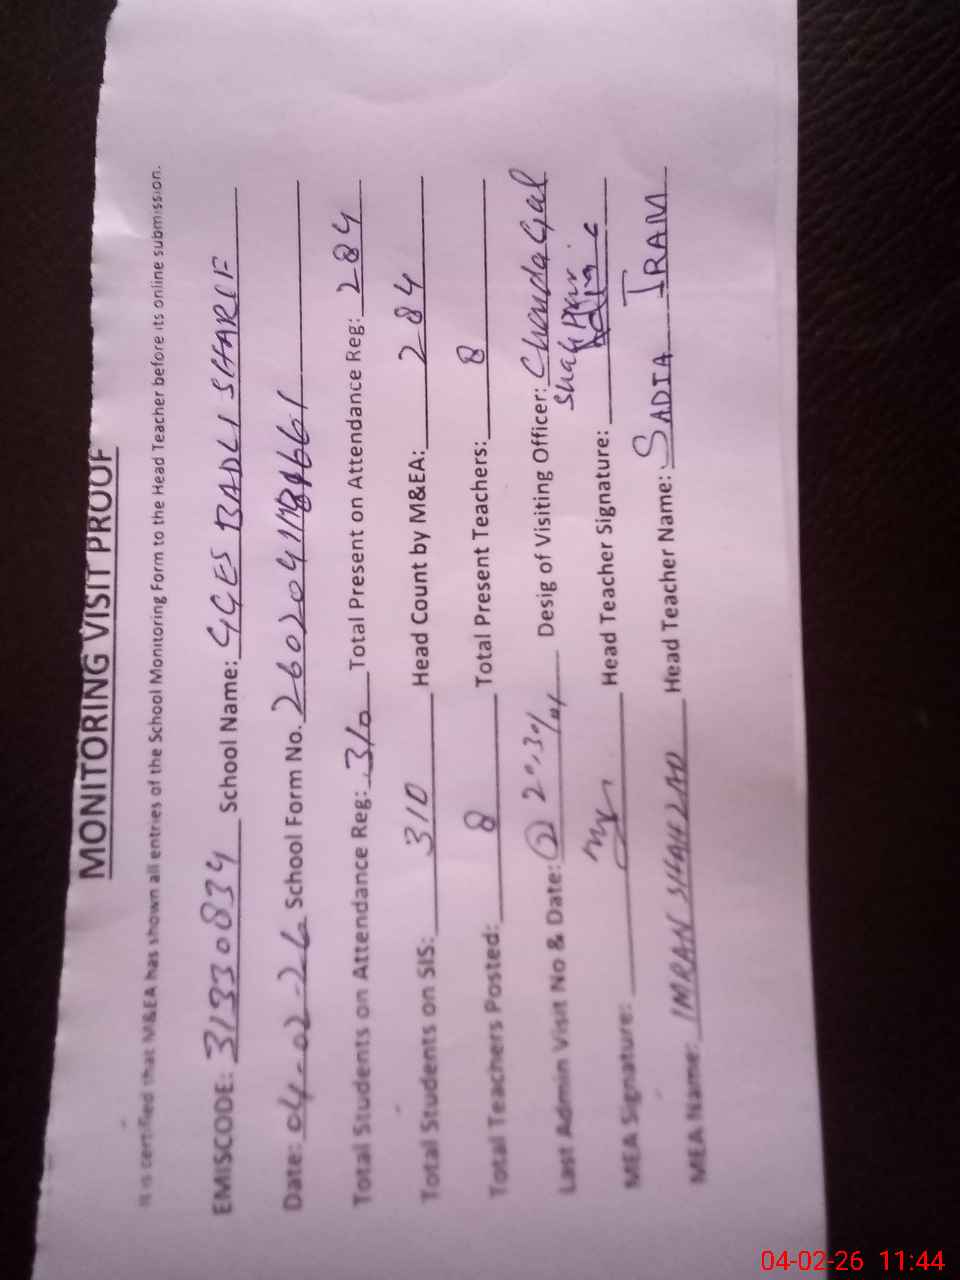 MONITORING VISIT PROOF
It is certified that M&EA has shown all entries of the School Monitoring Form to the Head Teacher before its online submission.
EMISCODE: 31330834 School Name: GGES BADLI SHARIF
Date: 04-02-26 School Form No. 26020411
Total Students on Attendance Reg: 310 Total Present on Attendance Reg: 284
Total Students on SIS: 310 Head Count by M&EA: 284
Total Teachers Posted: 8 Total Present Teachers: 8
Last Admin Visit No & Date: 2 Desig of Visiting Officer: Chanda Gal
MEA Signature: Head Teacher Signature:
MEA Name: IMRAN SHAHZAD Head Teacher Name: SADIA IRAM
04-02-26 11:44